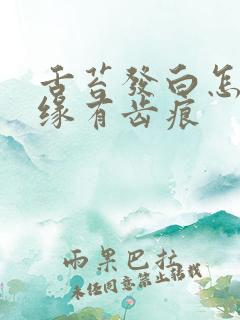 舌苔發白怎
緣有齿痕
雨果巴拉
未经同意禁止转载